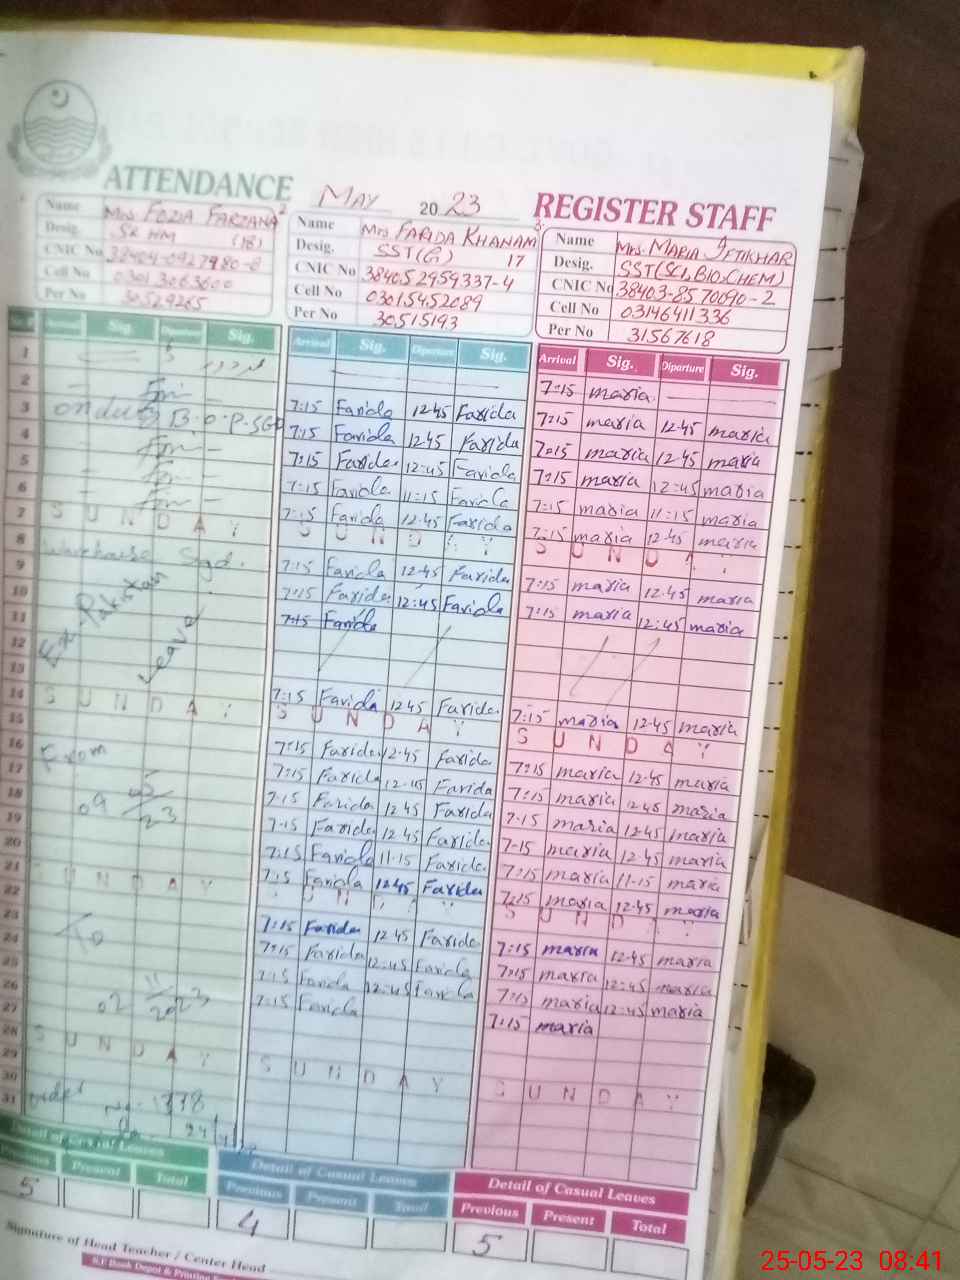 ATTENDANCE MAY 2023 REGISTER STAFF
Name Mrs. FOZIA FARZANA
Desig. SR HM (18)
CNIC No
Cell No 0301 3063600
Per No 30529265
Name Mrs. FARIDA KHANAM
Desig. SST(G) 17
CNIC No 384052959337-4
Cell No 03015452089
Per No 30515193
Name Mrs. MARIA IFTIKHAR
Desig. SST(SCI, BIO, CHEM)
CNIC No 38403-8570090-2
Cell No 03146411336
Per No 31567618
Arrival Sig. Diparture Sig.
1
2
3
4
5
6
7 S U N D A Y
8
9
10 Ex-Pakistan
11
12
13 Leave
14 S U N D A Y
15
16 From
17
18 09 05/23
19
20
21 S U N D A Y
22
23 To
24
25
26 02 11/2023
27
28 S U N D A Y
29
30 order
31 No. 1378
Arrival Sig. Diparture Sig.
7:15 Farida 12 45 Farida
7:15 Farida 12 45 Farida
7:15 Farida 12:45 Farida
7:15 Farida 11:15 Farida
7:15 Farida 12.45 Farida
S U N D A Y
7:15 Farida 12.45 Farida
7:15 Farida 12:45 Farida
7:15 Farida
7:15 Farida 12 45 Farida
S U N D A Y
7:15 Farida 12.45 Farida
7:15 Farida 12.45 Farida
7.15 Farida 12 45 Farida
7.15 Farida 12 45 Farida
7:15 Farida 11.15 Farida
7:15 Farida 12.45 Farida
U N D A Y
7:15 Farida 12 45 Farida
7:15 Farida 12:45 Farida
7:15 Farida 12:45 Farida
7:15 Farida
S U N D A Y
Arrival Sig. Diparture Sig.
7:15 maria
7:15 maria 12.45 maria
7:15 maria 12.45 maria
7:15 maria 12:45 maria
7:15 maria 11:15 maria
7:15 maria 12.45 maria
S U N D A
7:15 maria 12.45 maria
7:15 maria 12:45 maria
7:15 maria 12.45 maria
S U N D A Y
7:15 maria 12.45 maria
7:15 maria 12.45 maria
7.15 maria 12.45 maria
7.15 maria 12.45 maria
7:15 maria 11.15 maria
7:15 maria 12.45 maria
S U N D A Y
7:15 maria 12.45 maria
7:15 maria 12:45 maria
7:15 maria 12:45 maria
7:15 maria
S U N D A Y
Detail of Casual Leaves
Previous Present Total
5
Detail of Casual Leaves
Previous Present Total
4
Detail of Casual Leaves
Previous Present Total
5
Signature of Head Teacher / Center Head
25-05-23 08:41